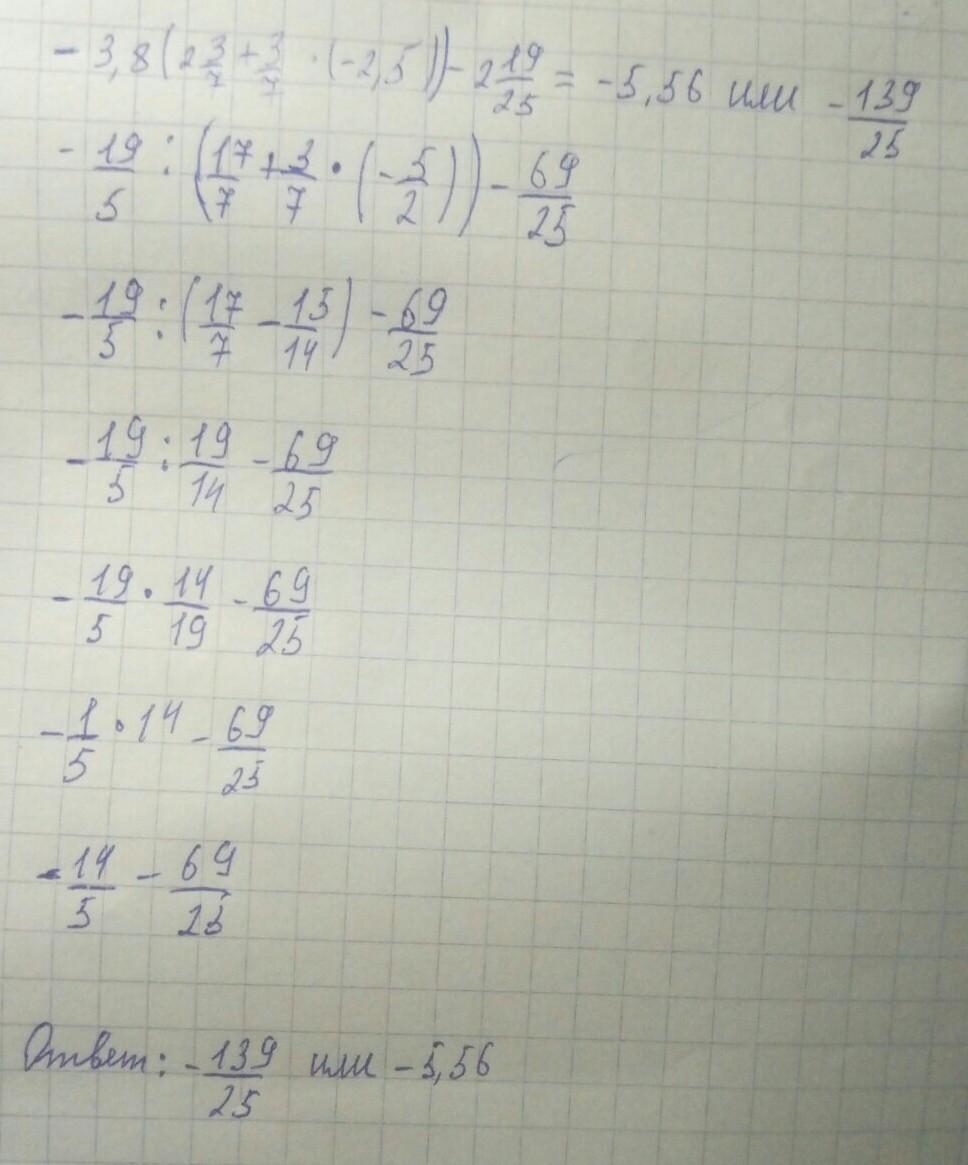 - 3,8 (2 3/7 + 3/7 · (-2,5)) - 2 19/25 = -5,56 или - 139/25
- 19/5 : (17/7 + 3/7 · (- 5/2)) - 69/25
- 19/5 : (17/7 - 15/14) - 69/25
- 19/5 : 19/14 - 69/25
- 19/5 · 14/19 - 69/25
- 1/5 · 14 - 69/25
- 14/5 - 69/25
Ответ: - 139/25 или -5,56